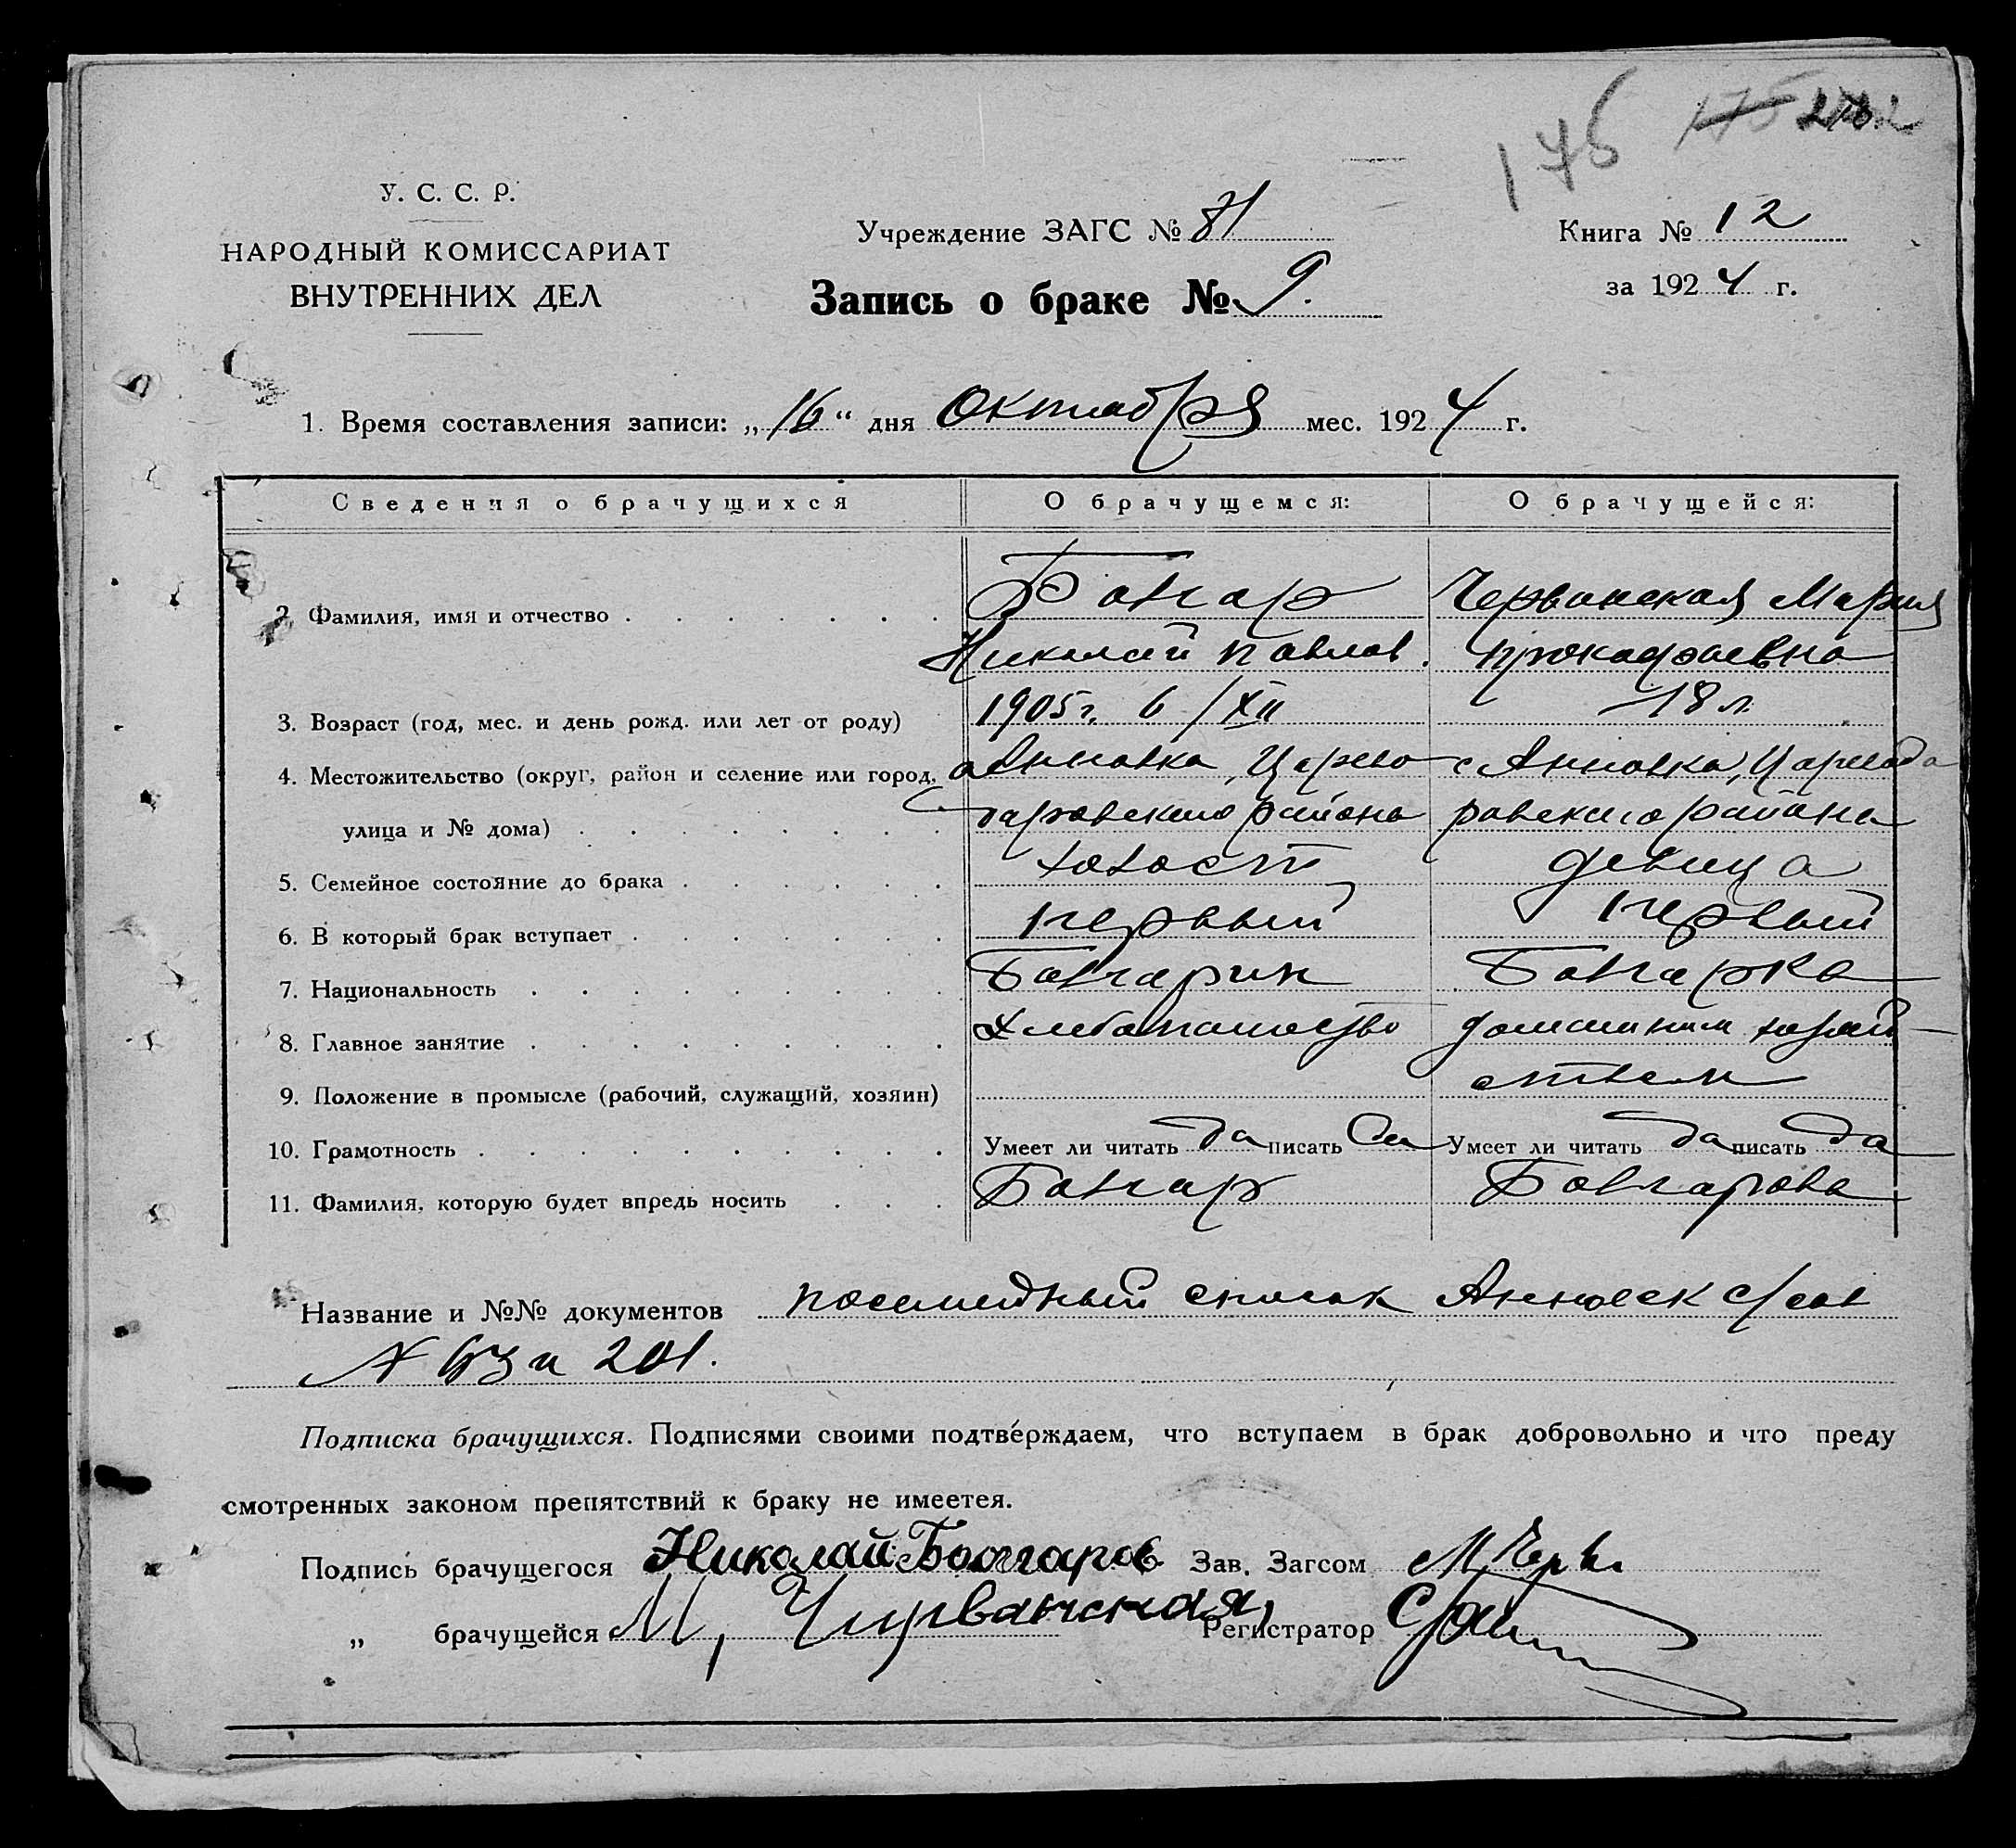 175 175 212
У. С. С. Р.
НАРОДНЫЙ КОМИССАРИАТ
ВНУТРЕННИХ ДЕЛ
Учреждение ЗАГС № 81
Запись о браке № 9.
Книга № 12
за 1924 г.
1. Время составления записи: „16“ дня Октября мес. 1924 г.
Сведения о брачущихся О брачущемся: О брачущейся:
2. Фамилия, имя и отчество Болгар Червинская Мария
Николай Павлов. Прокофьевна
3. Возраст (год, мес. и день рожд. или лет от роду) 1905 г. 6/XII 18 л
4. Местожительство (округ, район и селение или город, Анновка, Царево с Анновка, Царевода
улица и № дома) даровского района ровского района
5. Семейное состояние до брака холост девица
6. В который брак вступает первый первый
7. Национальность Болгарин Болгарка
8. Главное занятие Хлебопашество домашним хозяй-
9. Положение в промысле (рабочий, служащий, хозяин) ством
10. Грамотность Умеет ли читать да писать да Умеет ли читать да писать да
11. Фамилия, которую будет впредь носить Болгар Болгарова
Название и №№ документов посемейный список Анновск с/сов
№ 63 и 201.
Подписка брачущихся. Подписями своими подтверждаем, что вступаем в брак добровольно и что преду
смотренных законом препятствий к браку не имеетея.
Подпись брачущегося Николай Болгаров Зав. Загсом
„ брачущейся М, Чирванская, Регистратор